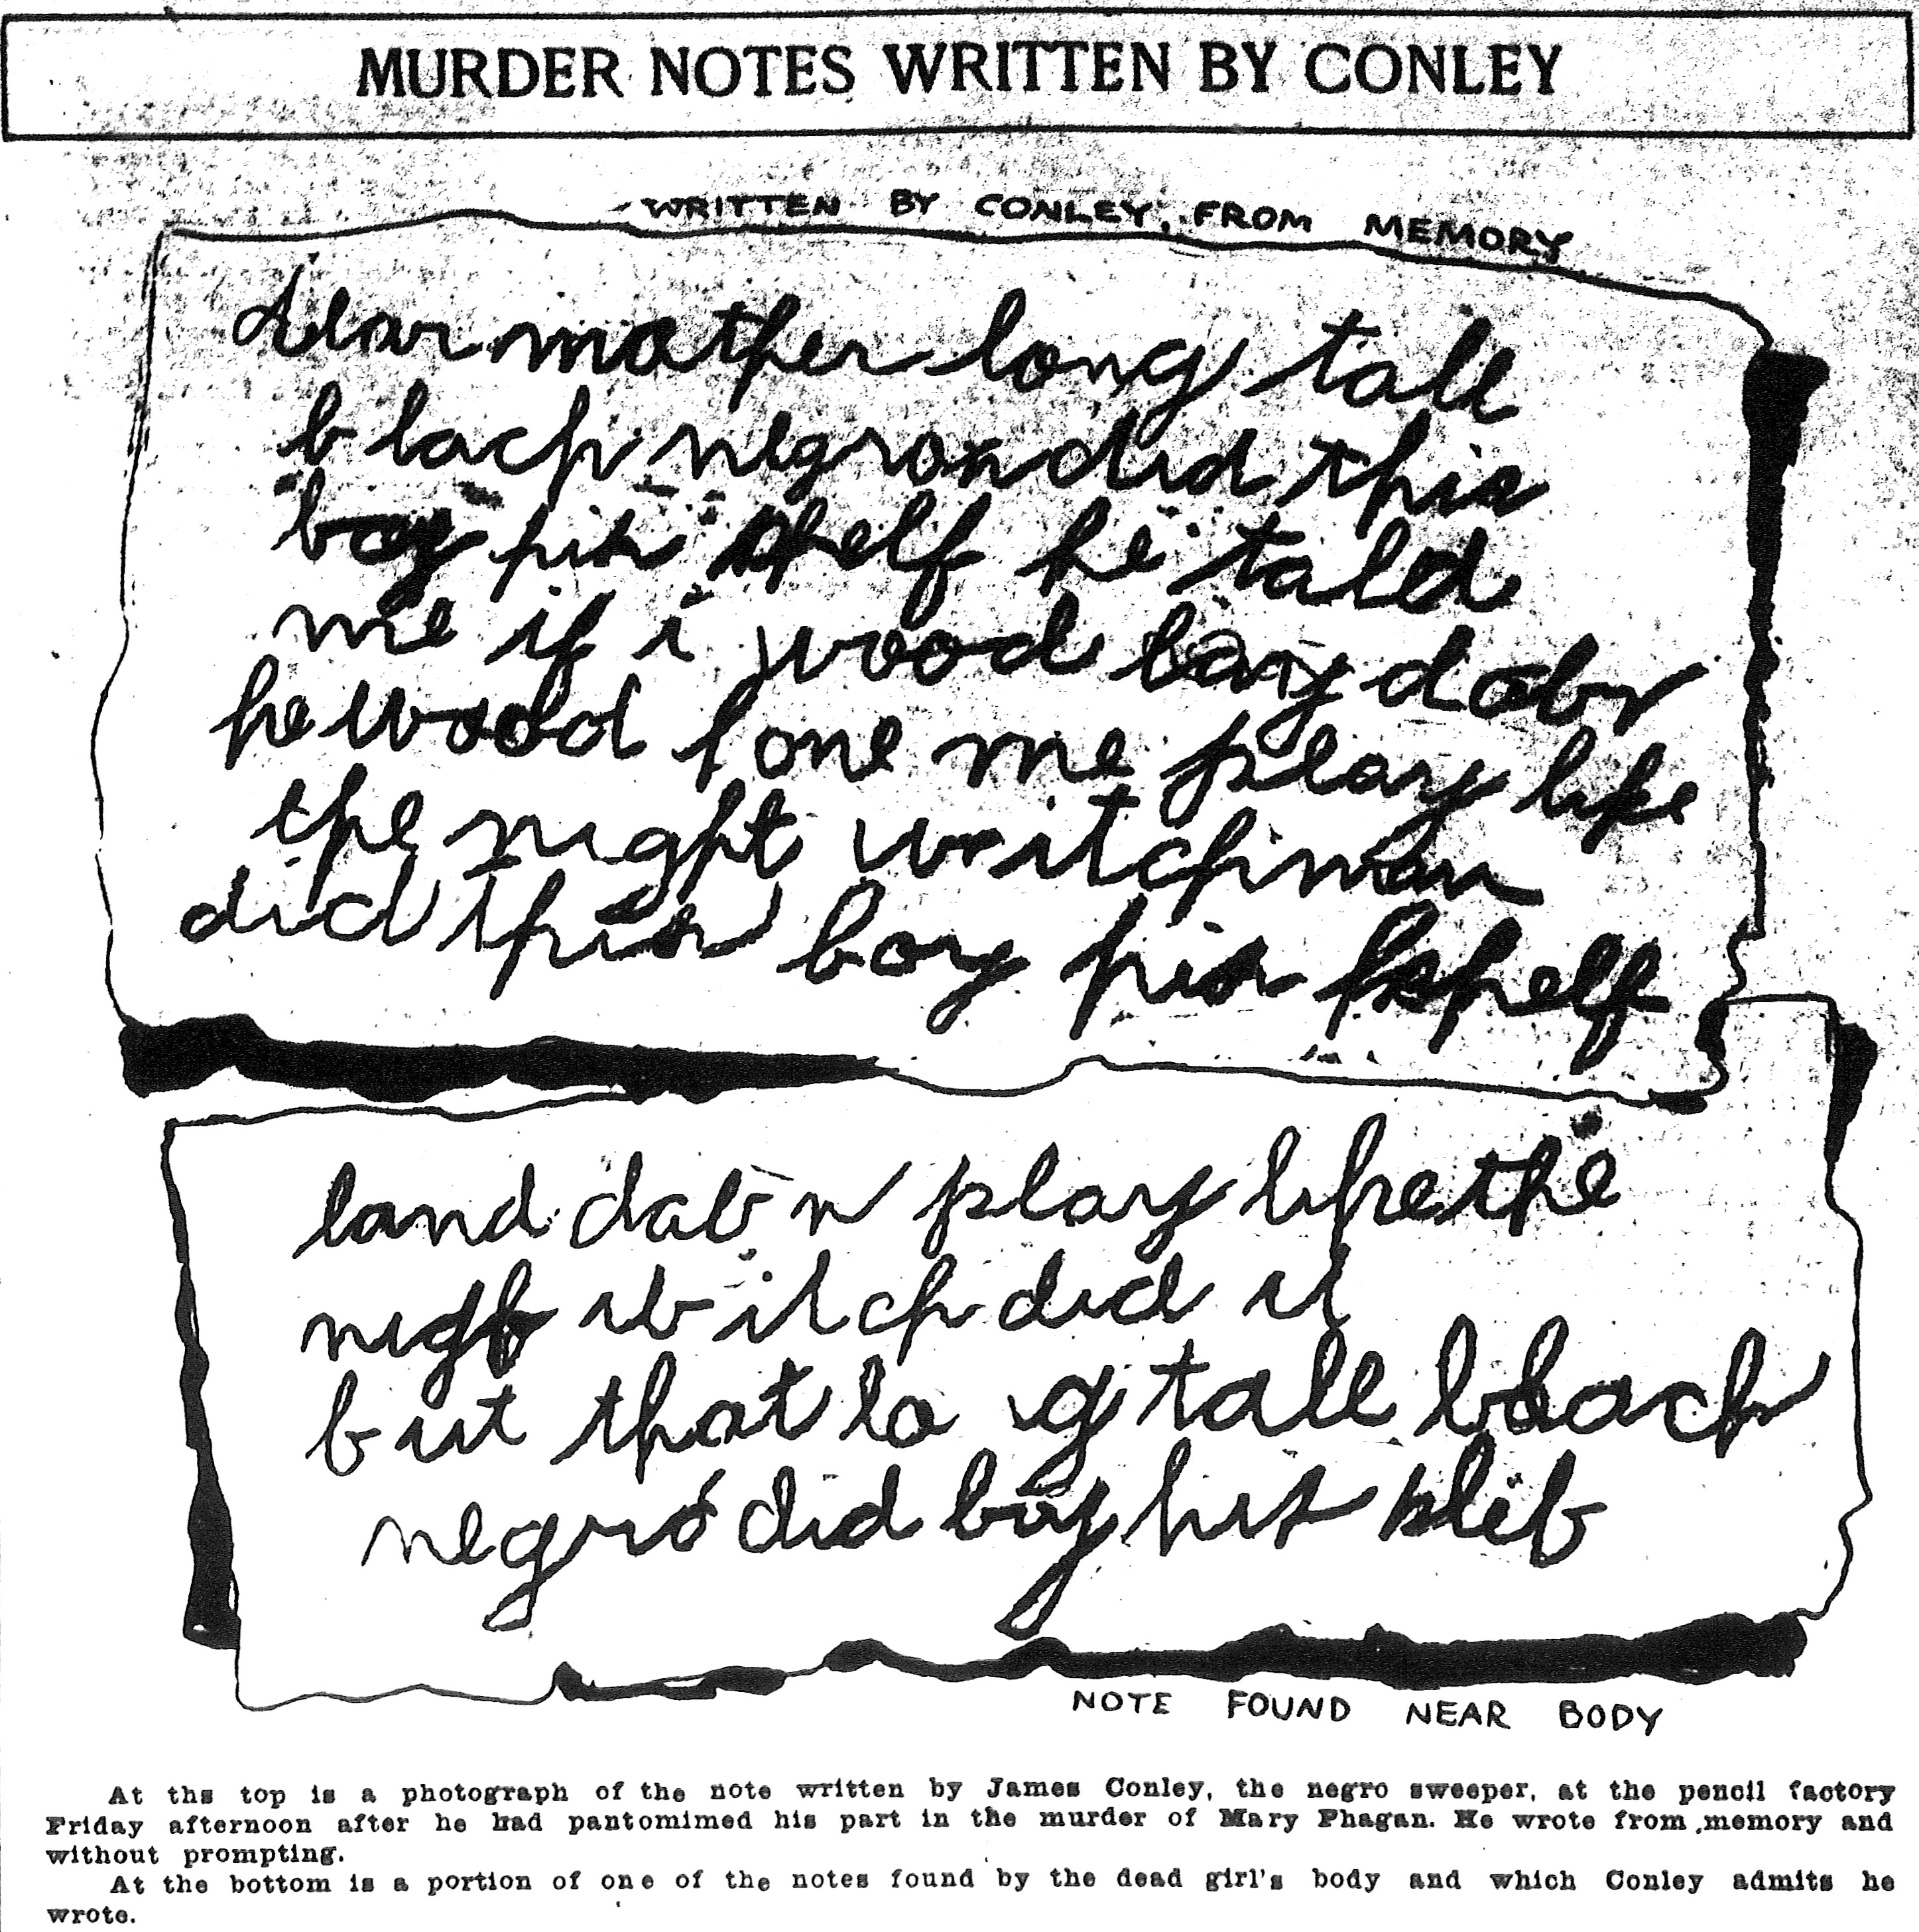 MURDER NOTES WRITTEN BY CONLEY
WRITTEN BY CONLEY, FROM MEMORY
dear mother long tall
black negron did this
boy his shelf he told
me if i wood lay down
he wood lone me play like
the night witchman
did this boy his
land dab n play like the
nigh witch did it
but that lo g tall black
negro did boy his slef
NOTE FOUND NEAR BODY
At ths top is a photograph of the note written by James Conley, the negro sweeper, at the pencil factory
Friday afternoon after he had pantomimed his part in the murder of Mary Phagan. He wrote from memory and
without prompting.
At the bottom is a portion of one of the notes found by the dead girl's body and which Conley admits he
wrote.